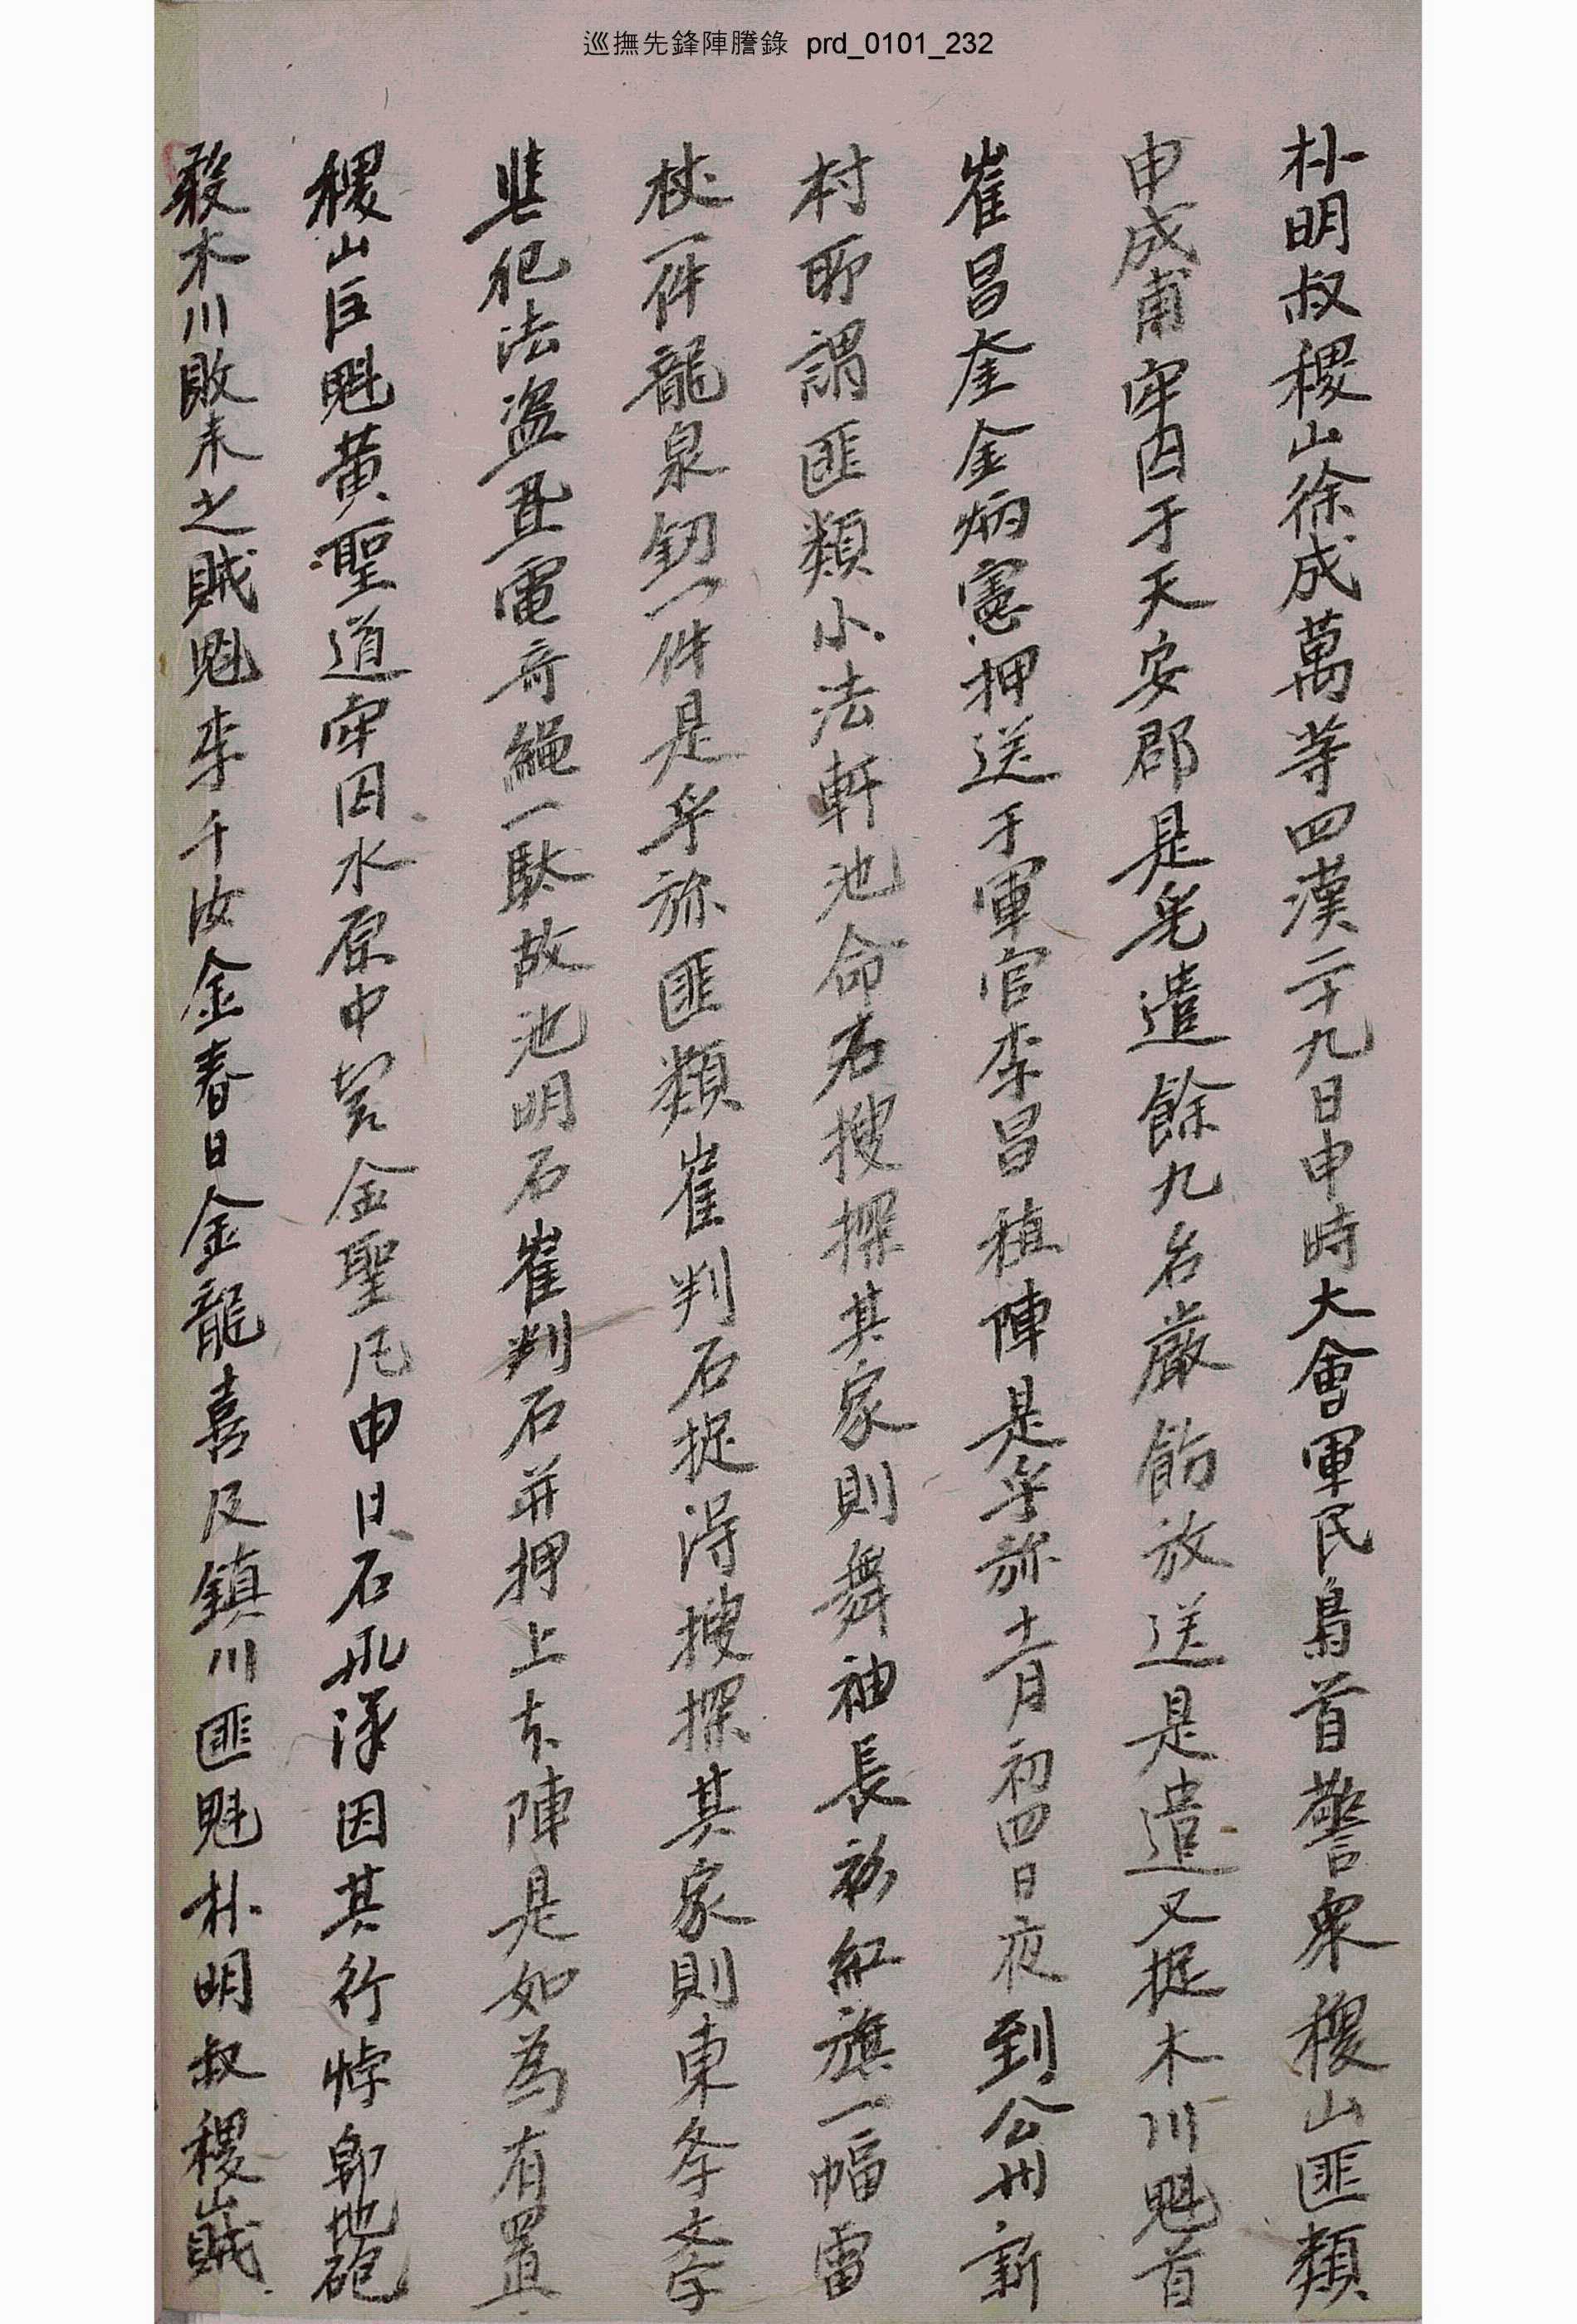 巡撫先鋒陣謄錄 prd_0101_232
朴明叔稷山徐成萬等四漢二十九日申時大會軍民梟首警衆稷山匪類
申成甫牢囚于天安郡是乎遣餘九名嚴飭放送是遣又捉木川魁首
崔昌奎金炳憲押送于軍官李昌稙陣是乎旀十一月初四日夜到公州新
村所謂匪類小法軒池命石搜探其家則舞袖長衫紅旗一幅雷
杖一件龍泉釰一件是乎旀匪類崔判石捉得搜探其家則東冬文字
犯法盜且電奇繩一駄故池明石崔判石幷押上本陣是如爲有置
稷山巨魁黃聖道牢囚水原中營金聖凡申日石孔漾因其行悖卽地砲
殺木川敗未之賊魁李千汝金春日金龍喜及鎭川匪魁朴明叔稷山賊